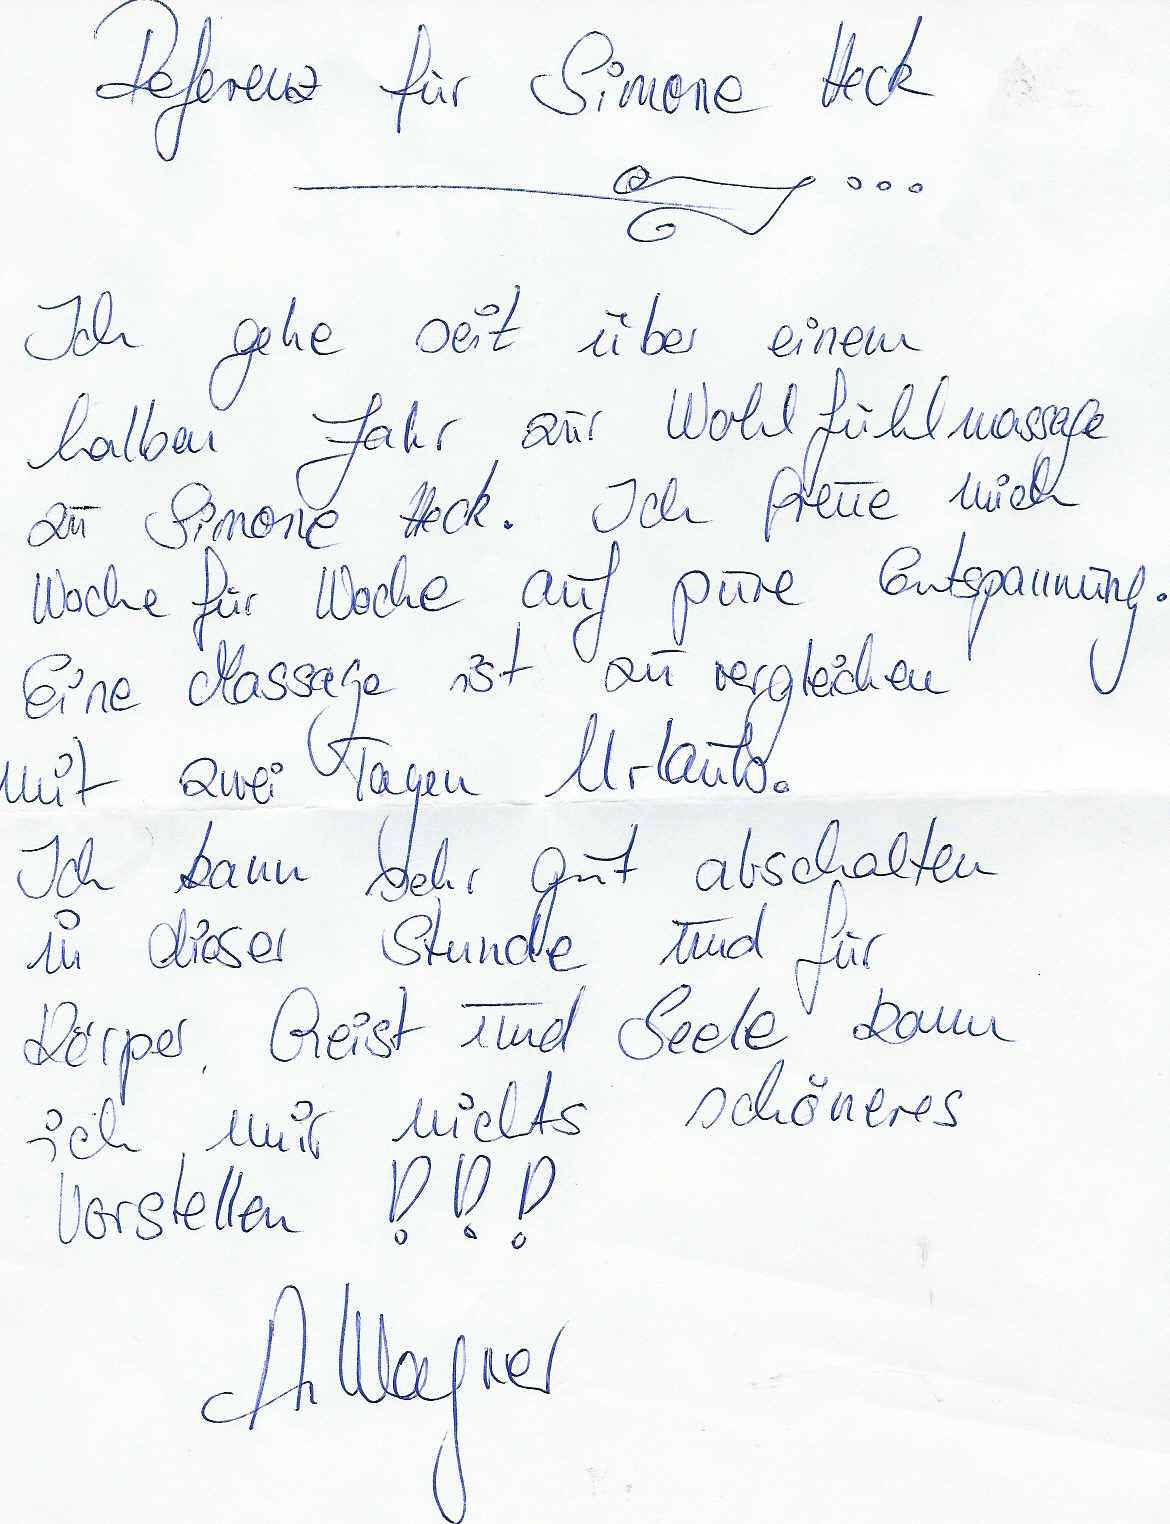 Referenz für Simone Heck
Ich gehe seit über einem
halben Jahr zur Wohlfühlmassage
zu Simone Heck. Ich freue mich
Woche für Woche auf pure Entspannung.
Eine Massage ist zu vergleichen
mit zwei Tagen Urlaub.
Ich kann sehr gut abschalten
in dieser Stunde und für
Körper, Geist und Seele kann
ich mir nichts schöneres
Vorstellen !!!
A. Wagner